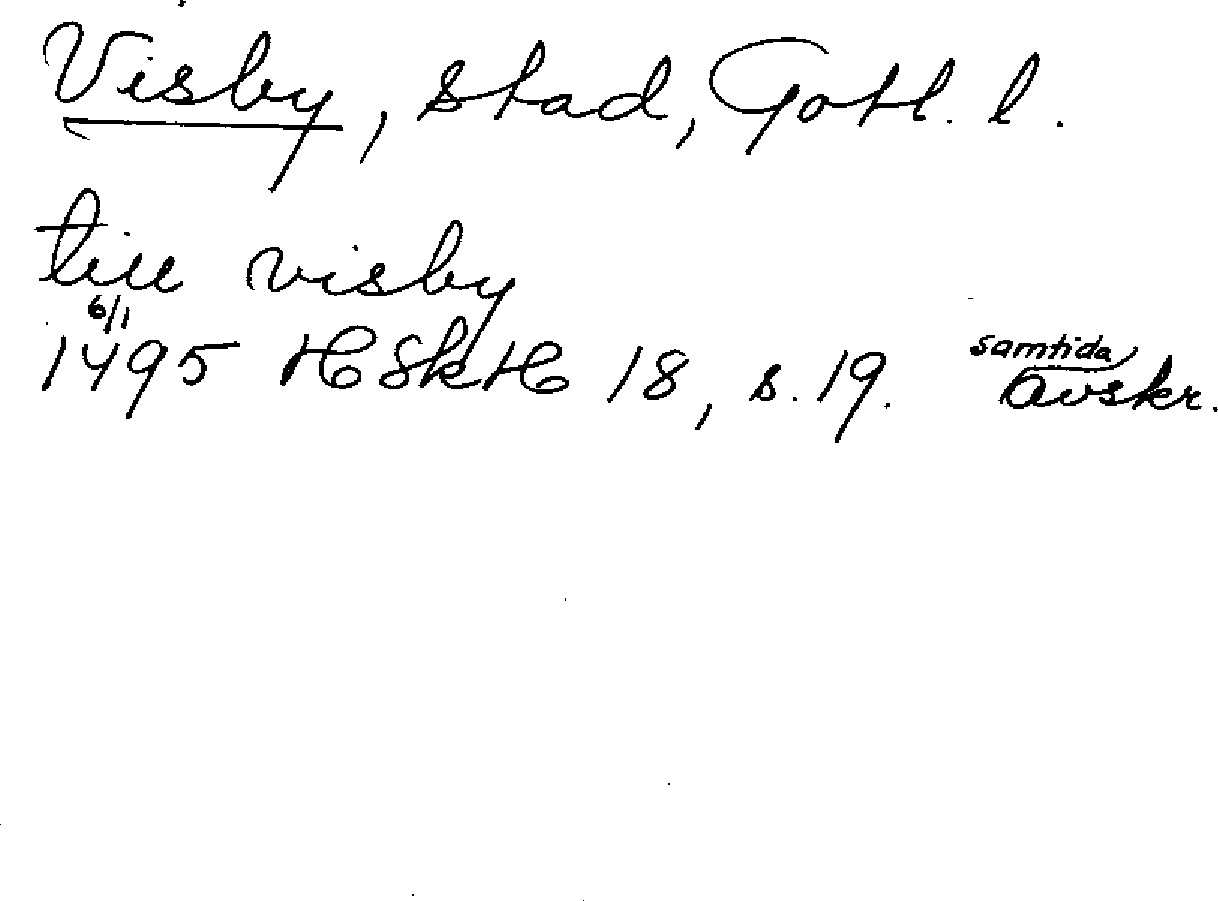 Visby, stad, Gotl. l.
till visby
6/1
1495 HSkH 18, s. 19. samtida avskr.